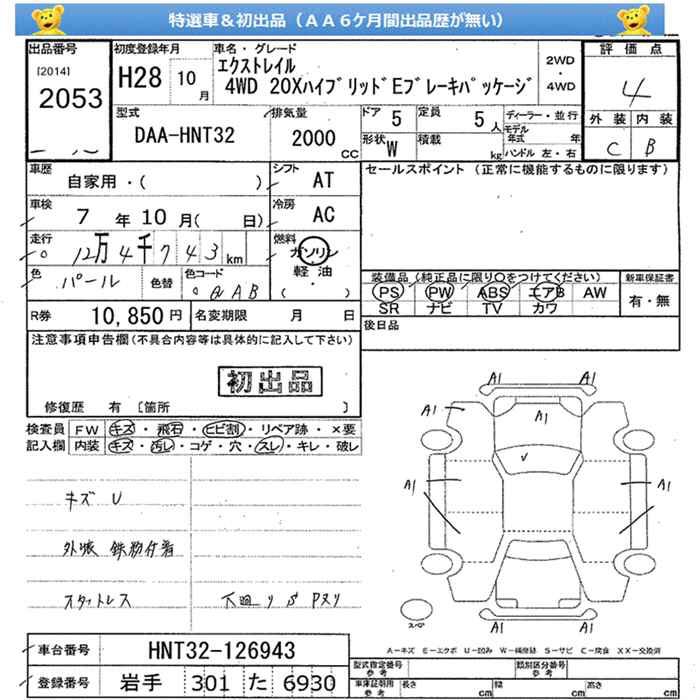 特選車＆初出品（ＡＡ６ケ月間出品歴が無い）
出品番号 [2014] 2053
初度登録年月 H28 10月
車名・グレード エクストレイル
4WD 20XハイブリッドEブレーキパッケージ
2WD・4WD
評価点 4
外装 C 内装 B
型式 DAA-HNT32
排気量 2000 CC
ドア 5 定員 5人
形状 W 積載 kg
ディーラー・並行
モデル年式 年
ハンドル 左・右
車歴 自家用・( )
シフト AT
セールスポイント（正常に機能するものに限ります）
車検 7年10月( 日)
冷房 AC
走行 12万4千743km
燃料 ガソリン
軽油
( ・ )
色 パール 色替 色コード QAB
装備品（純正品に限り○をつけてください） 新車保証書
PS PW ABS エアB AW 有・無
SR ナビ TV カワ
R券 10,850円 名変期限 月 日
後日品
注意事項申告欄(不具合内容等は具体的に記入して下さい)
初出品
修復歴 有 [箇所 ]
検査員記入欄
FW キズ・飛石・ヒビ割・リペア跡・×要
内装 キズ・汚レ・コゲ・穴・スレ・キレ・破レ
キズ U
外板 鉄粉付着
スタットレス 下廻りS Pヌリ
A1 A1
A1 A1 A1
A1 A1
A1 A1
スペア
A－キズ E－エクボ U－凹み W－補修跡 S－サビ C－腐食 XX－交換済
車台番号 HNT32-126943
登録番号 岩手 301 た 6930
型式指定番号 参考 類別区分番号 参考
車庫証明用 参考 長さ cm 幅 cm 高さ cm